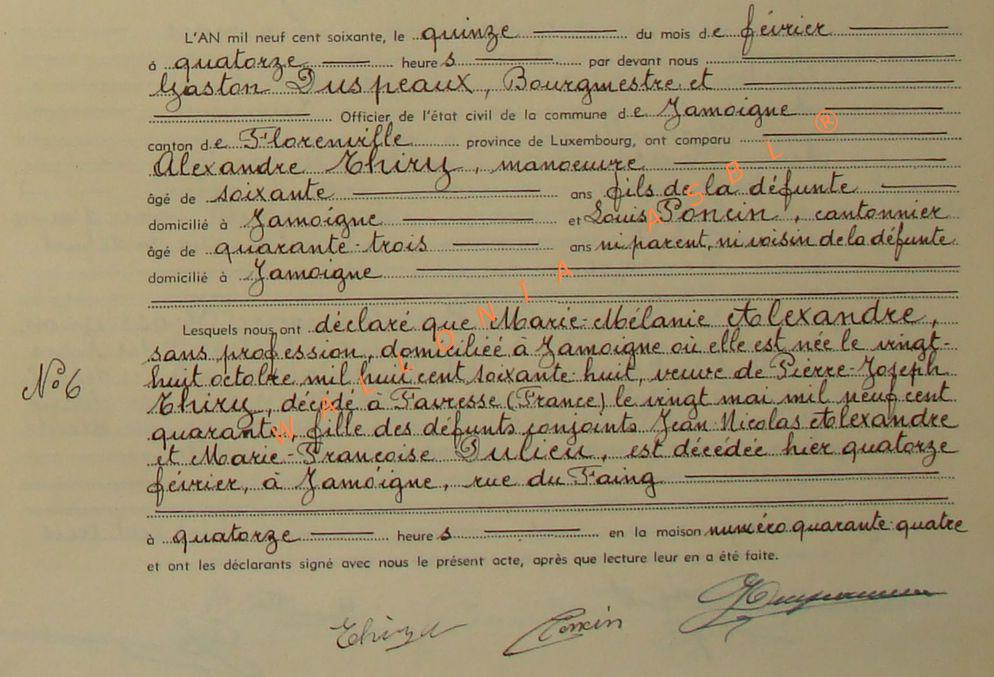 L'AN mil neuf cent soixante, le quinze du mois de février
à quatorze heures par devant nous
Gaston Duspeaux, Bourgmestre et
Officier de l'état civil de la commune de Jamoigne
canton de Florenville province de Luxembourg, ont comparu
Alexandre Thiry, manoeuvre
âgé de soixante ans fils de la défunte
domicilié à Jamoigne et Louis Poncin, cantonnier
âgé de quarante-trois ans ni parent, ni voisin de la défunte
domicilié à Jamoigne
Lesquels nous ont déclaré que Marie-Mélanie Alexandre,
sans profession, domiciliée à Jamoigne où elle est née le vingt-
N° 6 huit octobre mil huit cent soixante-huit, veuve de Pierre-Joseph
Thiry, décédé à Favresse (France) le vingt mai mil neuf cent
quarante, fille des défunts conjoints Jean-Nicolas Alexandre
et Marie-Françoise Dulieu, est décédée hier quatorze
février, à Jamoigne, rue du Faing
à quatorze heures en la maison numéro quarante-quatre
et ont les déclarants signé avec nous le présent acte, après que lecture leur en a été faite.
Thiry Poncin
WALLONIA ASBL ®